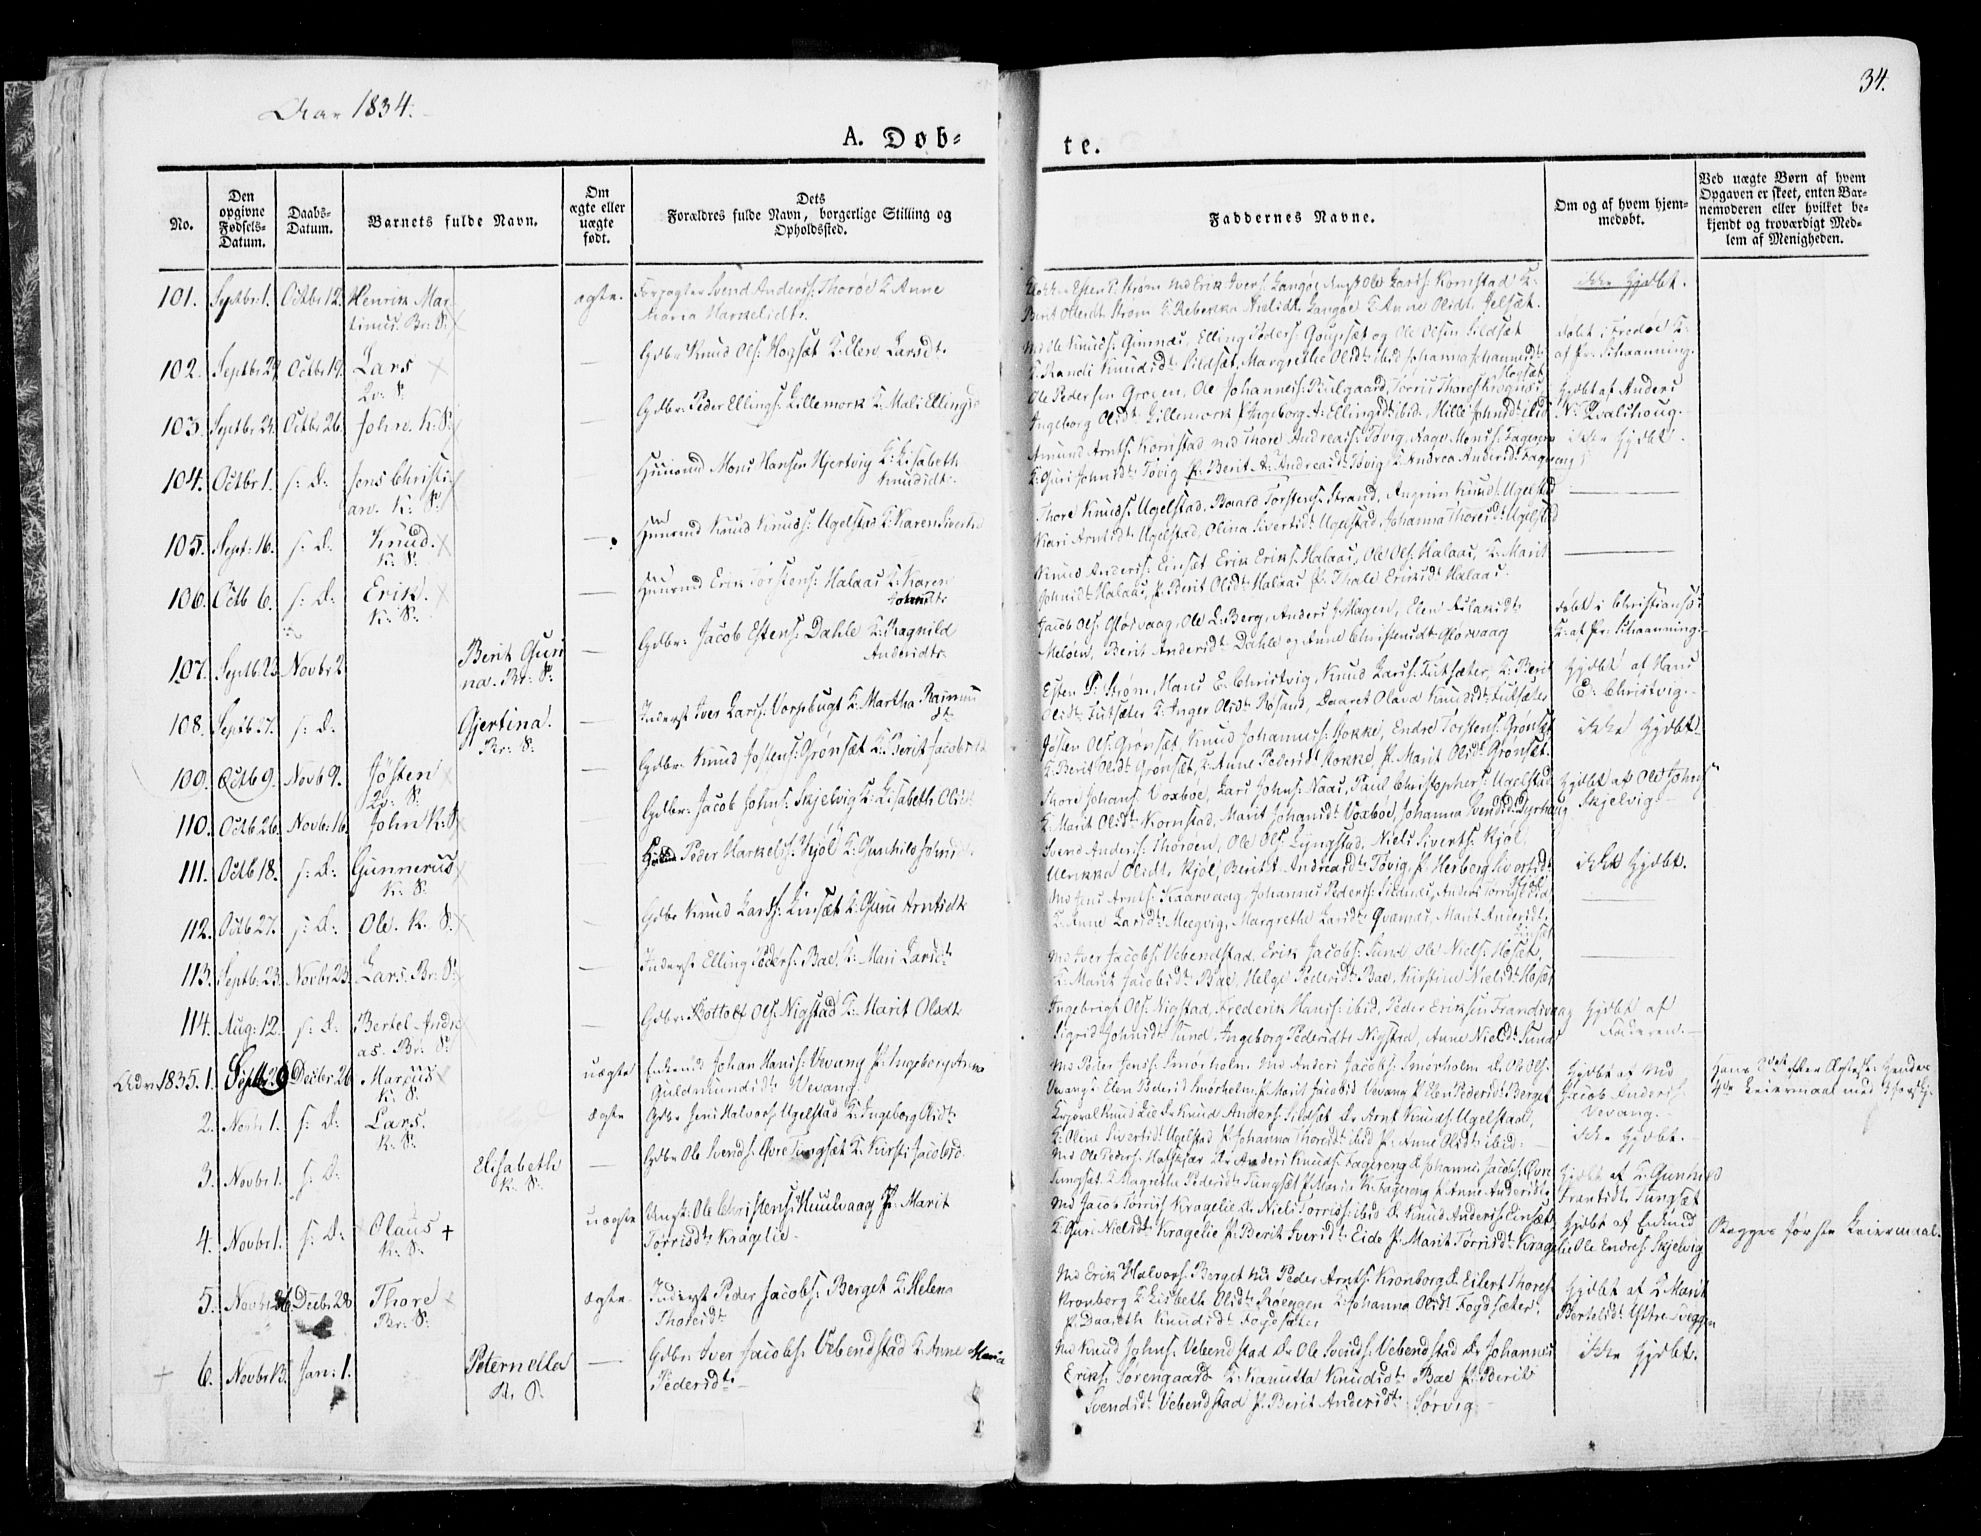 Aar 1834.
34.
A. Døb-
te.
No.
Den opgivne Fødsels-Datum.
Daabs-Datum.
Barnets fulde Navn.
Om ægte eller uægte født.
Dets Forældres fulde Navn, borgerlige Stilling og Opholdssted.
Faddernes Navne.
Om og af hvem hjem-
medøbt.
Ved uægte Børn af hvem
Opgaven er skeet, enten Bar-
nemoderen eller hvilket be-
kjendt og troværdigt Med-
lem af Menigheden.
101. Septbr 1. Octbr 12. Henrik Mar-
tinus. Br: S:
ægte. Forpagter Svend Anders: Thorøe K: Anne
Maria Harkelsdt.
Esten P. Strøm Md Erik Ivers: Langøe Ole Lars: Kornstad K:
Berit Olsdt Strøm K: Rebekka Nielsdt Langøe K: Anne Olsdt.
ikke hjdbt.
102. Septbr 29. Octbr 19. Lars
Qv: S.
— Gdbr Knud Ols: Hogsæt K: Elen Larsdt.
Md Ole Knuds: Elling Peders: Gougsæt og Ole Olsen Sildsæt
K: Randi Knudsdt: Sildsæt, Margrethe Olsdt: ibid Johanna Johannesdt:
Hogsæt
døbt i Fredøe K:
af Pr. Schaanning.
103. Septbr 24. Octbr 26. John. K: S:
— Gdbr: Peder Ellings: Lillemork K: Mali Ellingsd
Ole Pedersen Ole Johannes: Thores Krognæs
Ingeborg Olsdt: Lillemork P: Ingeborg A: Ellingsdt: ibid. Mille Johnsdt: ibid
hjdbt af Anders
N: Qvalshoug.
104. Octbr 1. s: D: Jens Christi-
an. K: S:
— Huusmd Mons Hansen Hjertvig K: Lisabeth
Knudsdt:
Amund Arnts: Kornstad Md Thore Andreas: Tøvig, Aage Mons: Fagereng
K: Guri Johnsdt: Tøvig P: Berit A: Andreasdt: Tøvig K: Andrea Andersdt: Fagereng
ikke hjdbt.
105. Sept: 16. s: D: Knud.
K: S:
— Huusmd Knud Knuds: Ugelstad K: Karen Sivertsd
Thore Knuds: Ugelstad, Baard Torstens: Strand, Knuds: Ugelstad
Kari Arntsdt: Ugelstad, Olina Sivertsdt: Ugelstad, Johanna Thoresdt: Ugelstad
106. Octb 6. s: D: Erik.
K: S:
— Huusmd Erik Torstens: Halaas K: Karen
Johnsdt:
Knud Anders: Einset Erik Eriks: Halaas, Ole Ols: Halaas, K: Marit
Johnsdt: Halaas, P: Berit Olsdt: Halaas P: Thale Eriksdt: Halaas.
107. Septb 23. Novbr 2. Berit Guri
na. Br: S:
— Gdbr: Jacob Estens: Dahle K: Ragnild
Jacob Ols: Glørvaag, Ole L: Berg, Anders J: Magen, Elen
Meløen, Berit Andersdt: Dahle og Anne Christensdt: Glørvaag
døbt i Christiansu:
K: af Pr. Schaanning.
108. Septb 27. s: D: Gjertina.
Br: S:
— Inderst Iver Lars: Vorpbugt K: Martha Rasmus
dt
Esten P: Strøm, Hans E: Christvig, Knud Lars: Futsæter, K: Berit
Olsdt: Futsæter K: Inger Olsdt: Rosand, Daaret Olava Knudsdt: Futsæter
hjdbt af Hans
E: Christvig.
109. Octb 9. Novb 9. Jøsten
Qv: S:
— Gdbr: Knud Jostens: Grønset K: Berit Jacobsdt
Jøsten Ols: Grønset, Knud Johannes: Stokke, Endre Torstens: Grønset
K: Berit Olsdt: Grønset, K: Anne Pedersdt: Stokke, P: Marit Olsdt: Grønset.
ikke hjdbt.
110. Octb 26. Novb: 16. John K: S
Gdbr: Jacob Johns: Skjelvig K: Lisabeth Olsdt
Thore Johans: Voxboe, Lars Johns: Naas, Paul Christophers: Ugelstad
K: Marit Olsdt: Kornstad, Marit Johansdt: Voxboe, Johanna Svendsd: Dyrhaug
hjdbt af Ole Johns
Skjelvig.
111. Octb 18. s: D: Gunnerus,
K: S.
Peder Harkels: Kjøl K: Gunhild Johnsdt
Svend Anders: Thorøen, Ole Ols: Lyngstad, Niels Siverts: Kjøl,
Ulrikka Olsdt: Kjøl, Berit A: Andreasdt: Tøvig, P: Herborg Sivertsdt:
ikke hjdbt.
112. Octb 27. s: D: Ole. K: S.
— Gdbr Knud Lars: Linset K: Guru Arntsdt
Md Jens Arnts: Kaarvaag Johannes Peders:
K: Anne Larsdt: Meegvig, Margrethe Larsdt: Qvarnes, Marit Andersdt:
Linset
113. Septb: 23. Novbr 23. Lars. Br: S:
— Inderst Elling Peders: Bae, K: Mari Larsdt
Md Iver Jacobs: Vebendstad, Erik Jacobs: Sund Ole Niels: Hoset,
K: Marit Jacobsdt: Bae, Helge Pedersdt: Bae, Kirstine Nielsdt: Hoset
114. Aug: 12. s: D: Bertel Andre
as. Br: S:
— Gdbr: Bottolf Ols: Nigstad K: Marit Olsdt
Ingebrigt Ols: Nigstad, Frederik Hans: ibid, Peder Eriksen
Sigrid Johnsdt: Sund, Ingeborg Pedersdt: Nigstad, Anne Nielsdt: Sund
hjdbt af
Faderen.
1835. 1. Septbr: 26 Decbr: 26 Marcus
K: S.
uægte Enkemd Johan Hans: Vevang P: Ingeborg Anne
Guldmundsdt: Vevang.
Md Peder Jens: Smørholm Md Anders Jacobs: Smørholm D: Ole Ols:
Vevang K: Elen Pedersd Smørholm P: Marit Jacobsd Vevang P: Elen Pedersdt: Berget
hjdbt af Md
Jacob Anders:
Vevang.
Hans efter
4de Leiermaal med
2. Novbr 1. s: D: Lars.
K: S.
ægte Gdbr Jens Halvors: Ugelstad K: Ingeborg Olsdt:
Knud Lie Dr Knud Anders: Sildset Dr Arnt Knuds: Ugelstad,
K: Oline Sivertsdt: Ugelstad P: Johanna Thoresdt: ibid P: Anne Olsdt: ibid:
ikke hjdbt.
3. Novbr 1. s: D: Elisabeth
K: S.
— Gdbr Ole Svends: Øvre Tungsæt K: Kirsti Jacobsd
Md Ole Peders: Dr Anders Knuds: Fagereng Dr Johannes Jacobs: Øvre
Tungsæt K: Magrethe Pedersdt: Tungsæt P: Maria K: Fagereng P: Anne Andersdt:
hjdbt af K: Gunnild
Tungsæt
4. Novbr 1. s: D: Olaus +
K: S.
uægte Ungk: Ole Christens: Huulvaag P: Marit
Torrisdt: Kragelie.
Md Jacob Torris: Kragelie Dr Niels Torris: ibid Dr Knud Anders: Einset,
K: Guri Nielsdt: Kragelie P: Berit Sversdt: Eide P: Marit Torrisdt: Kragelie
hjdbt af Enkemd
Ole Endres: Skjelvig
Begges første Leiermaal.
5. Novbr 26 Decbr 28 Thore
Br: S:
ægte Inderst Peder Jacobs: Berget K: Helena
Thoresdt
Md Erik Halvors: Berget Md Peder Arnts: Kronborg Dr Eilert Thores:
Kronberg K: Lisbeth Olsdt: Roeggen K: Johanna Olsdt Fogdsæter,
P: Daareth Knudsdt: Fogdsæter
hjdbt af K: Marit
Bertelsdt: Ystre
6. Novbr 13. Jan: 1. Peternella
K: S.
— Gdbr: Iver Jacobs: Vebendstad K: Anne Maria
Pedersdt:
Md Knud Johns: Vebendstad Dr Ole Svends: Vebendstad Dr Johannes
Eriks: Sørengaard K: Kanutta Knudsdt: Bae P: Berit
Svendsdt: Vebendstad P: Berit Andersdt: Sørvig
ikke hjdbt.